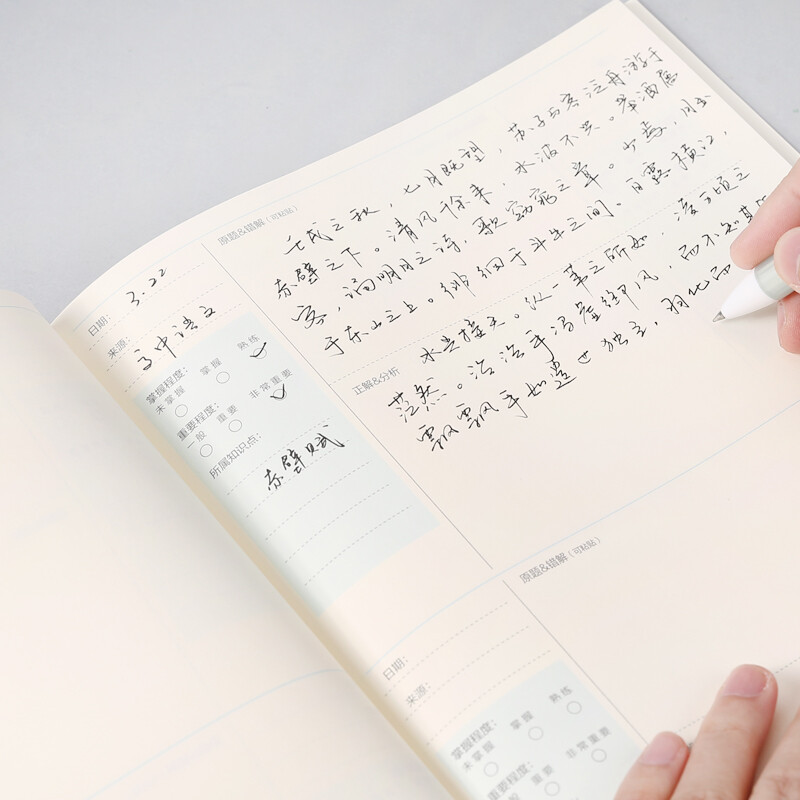 原题&错解（可粘贴）
壬戌之秋，七月既望，苏子与客泛舟游于
赤壁之下。清风徐来，水波不兴。举酒属
客，诵明月之诗，歌窈窕之章。少焉，月出
于东山之上。徘徊于斗牛之间。白露横江，
水光接天。纵一苇之所如，凌万顷之
茫然。浩浩乎冯虚御风，而不知其所
飘飘乎如遗世独立，羽化而
正解&分析
日期：3.22
来源：高中语文
掌握程度：
未掌握 掌握 熟练
重要程度：
一般 重要 非常重要
所属知识点：
赤壁赋
原题&错解（可粘贴）
日期：
来源：
掌握程度：
未掌握 掌握 熟练
重要程度：
一般 重要 非常重要